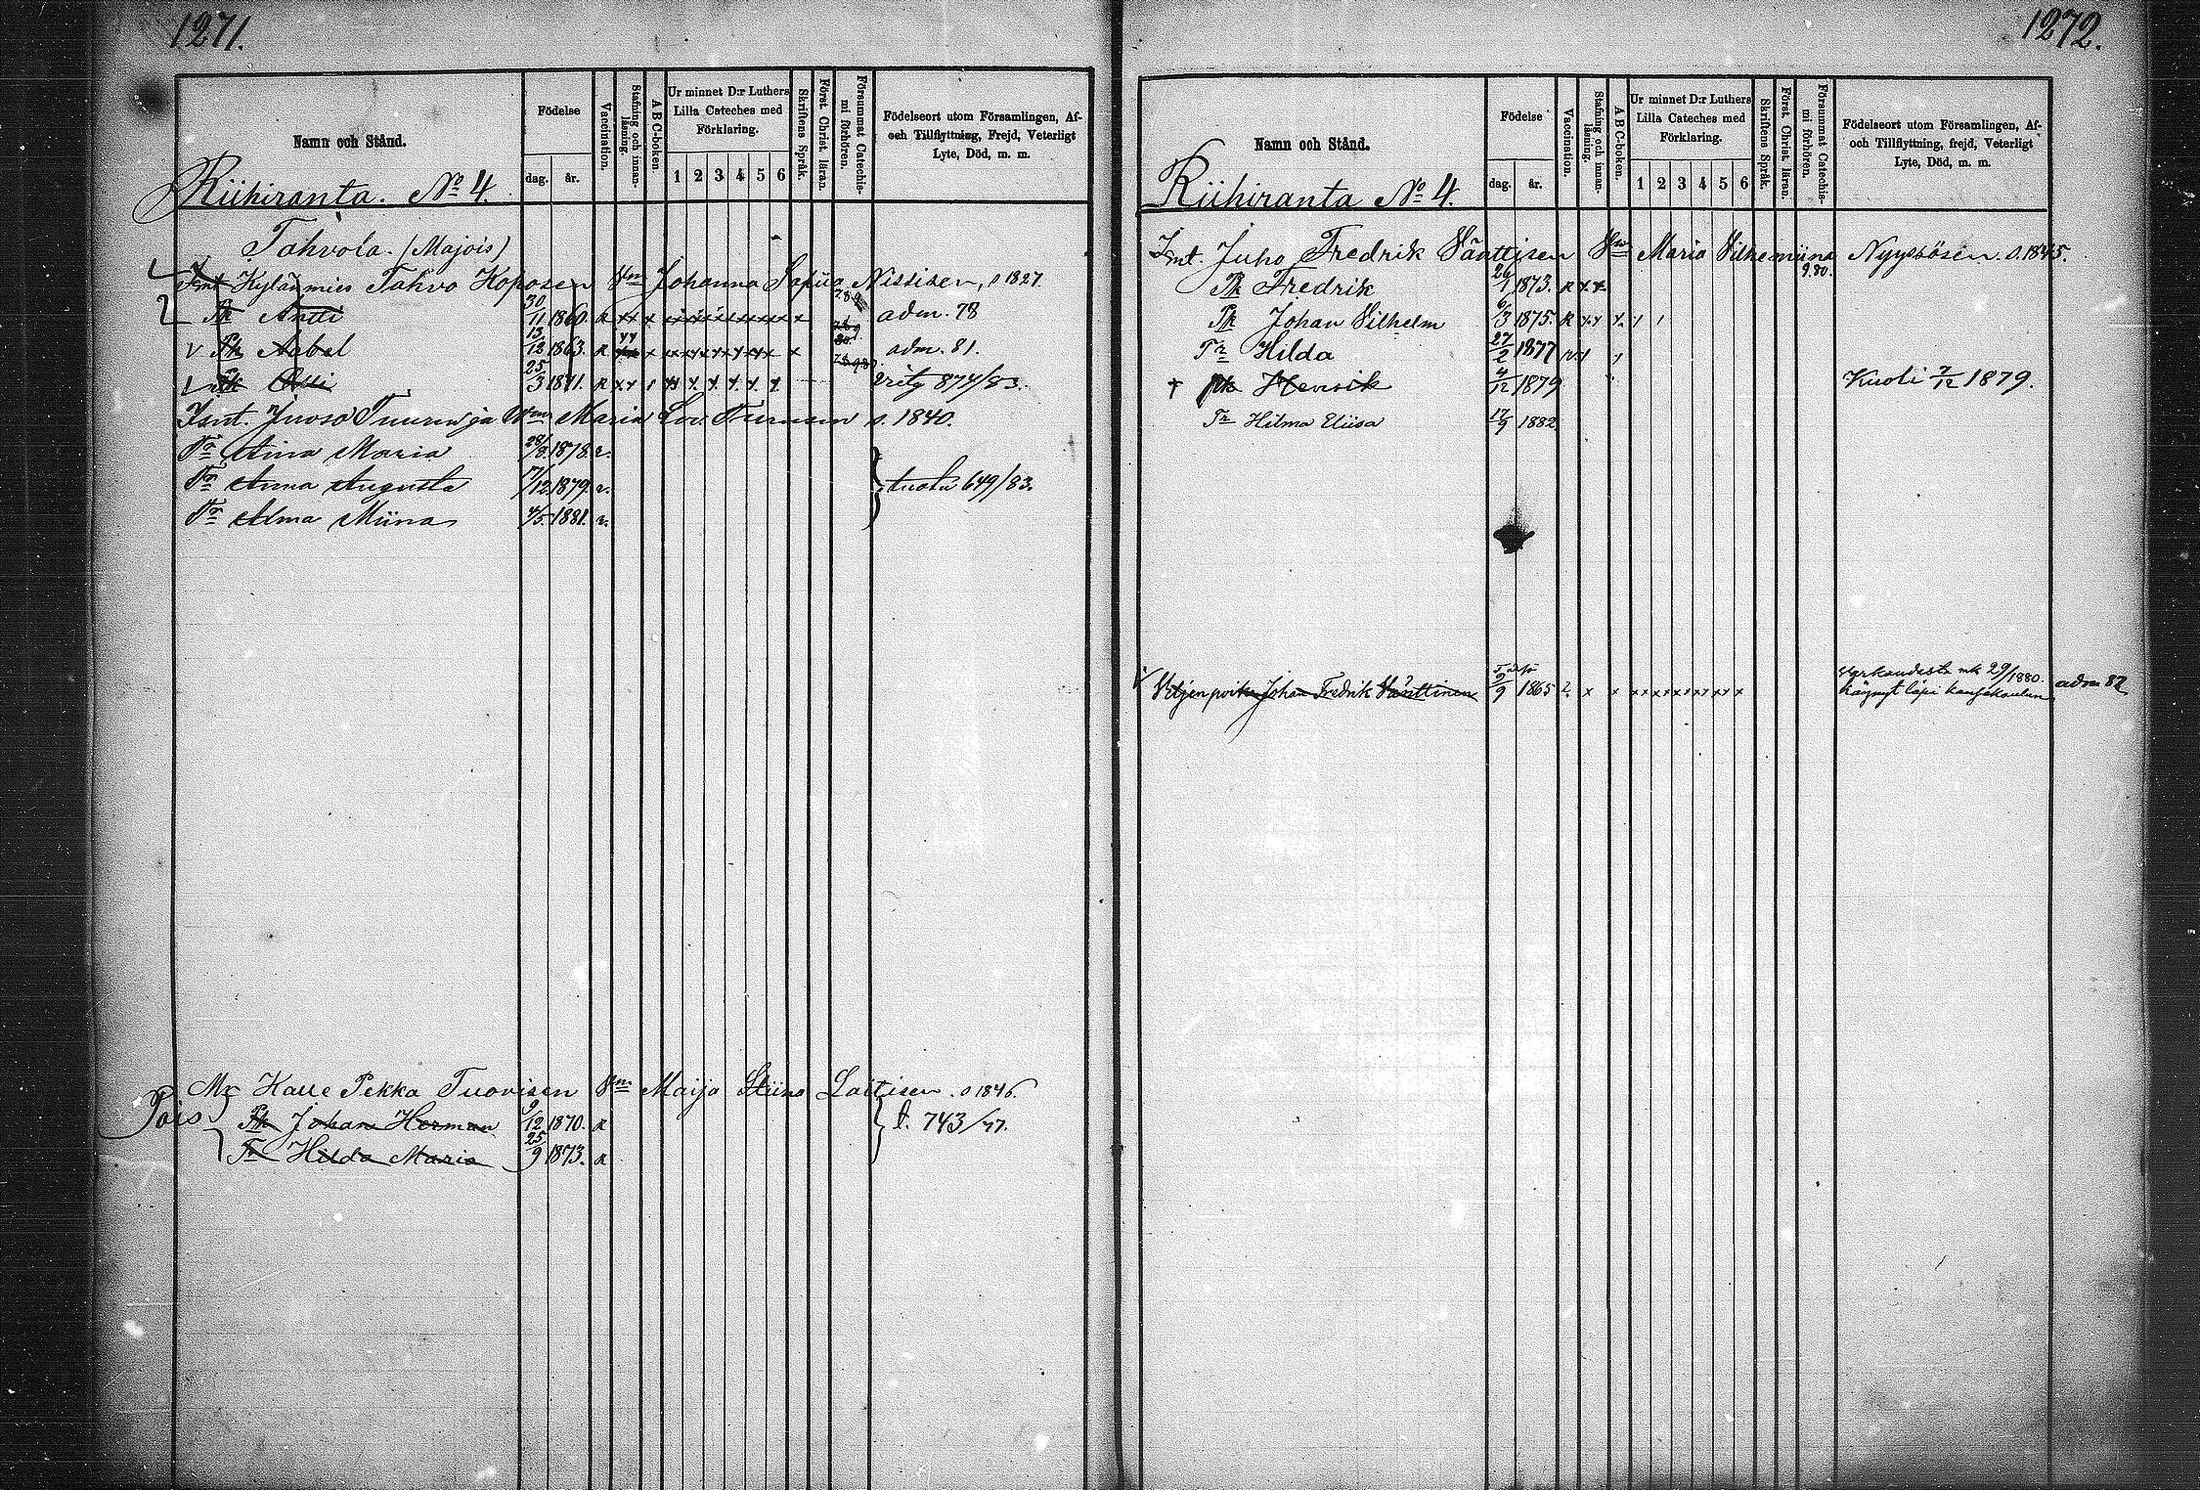 1271.
Namn och Stånd.
Födelse
dag.
år.
Vaccination.
Stafning och innan-
läsning.
A B C-boken.
Ur minnet D:r Luthers
Lilla Cateches med
Förklaring.
1 2 3 4 5 6
Skriftens Språk.
Först. Christ. läran.
Försummat Catechis-
mi förhören.
Födelseort utom Församlingen, Af-
och Tillflyttning, Frejd, Veterligt
Lyte, Död, m. m.
Riihiranta. No 4.
Tahvola. (Majois)
Kylänmies Tahvo Koposen Vm Johanna Nissisen, s 1827.
Pk Antti 30/11 1860. R xx x x adm. 78
v Pk Aabel 13/12 1863. R x x adm. 81.
Pk Olli 25/3 1871. R xx 874/83.
Ismt. Juoso ja Maria s. 1840.
Tr Aina Maria 28/8 1878. r.
Tr Anna Augusta 17/12 1879. r. tuolu 649/83.
Tr Alma Miina 4/5 1881. r.
Kalle Pekka Tuovisen Vm Maija Stiina Laitisen. s 1846.
Pois
Pk Johan Herman 9/12 1870. R l. 743/77.
Tr Hilda Maria 25/9 1873. R
1272.
Namn och Stånd.
Födelse
dag.
år.
Vaccination.
Stafning och innan-
läsning.
A B C-boken.
Ur minnet D:r Luthers
Lilla Cateches med
Förklaring.
1 2 3 4 5 6
Skriftens Språk.
Först. Christ. läran.
Försummat Catechis-
mi förhören.
Födelseort utom Församlingen, Af-
och Tillflyttning, frejd, Veterligt
Lyte, Död, m. m.
Riihiranta No 4.
Ismt. Juho Fredrik Vänttisen Vm Maria Vilhemiina Nyyssösen. s. 1845.
Pk Fredrik 26/1 1873. R x x 9.80.
Pk Johan Vilhelm 6/3 1875. R x x x
Tr Hilda 27/2 1877
† Pk Henrik 4/12 1879 Kuoli 7/12 1879.
Tr Hilma Eliisa 17/9 1882.
v Veljenpoika Johan Fredrik Vänttinen 9 1865 x x x x x x x x mk 29/1880.
käynyt läpi kansakoulun adm 82